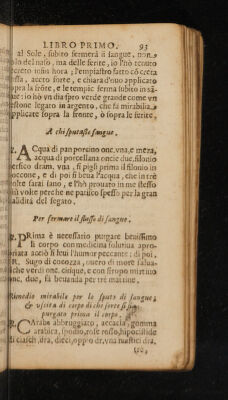 LIBRO PRIMO. 93
al Sole, subito fermerà il sangue, non
lo del naso, ma delle ferite, io l'hò tenuto
ecreto insin hora; l'empiastro fatto cō creta
ssa, aceto forte, e chiara d'ouo applicato
sopra la frōte, e le tempie ferma subito in sā-
te: io hò vn diaspro verde grande come vn
stone legato in argento, che fà mirabilia
pplicate sopra la fronte, ò sopra le ferite.
A chi sputasse sangue.
R. ACqua di pan porcino onc. vna, e meza,
acqua di porcellana oncie due, filonio
persico dram. vna, si pigli prima il filonio in
occone, e di poi si beua l'acqua, che in trè
volte farai sano, e l'hò prouato in me stesso
iù volte perche ne patisco spesso per la gran
alidità del segato.
Per fermare il flusso di sangue.
R. PRima è necessario purgare benissimo
il corpo con medicina solutiua apro-
priata acciò si leui l'humor peccante; di poi,
R. Sugo di cocozza, ouero di more salua-
iche verdi onc. cinque, e con siropo mirtino
onc. due, fà beuanda per trè mattine.
Rimedio mirabile per lo sputo di sangue;
& vscita di corpo di che sorte si sia
purgato prima il corpo.
R. CArabe abbruggiato, accacia, gomma
arabica, spodio, rose rosse, hipocistide
di ciasch. dra. dieci, oppio dr. vna mastici dra.